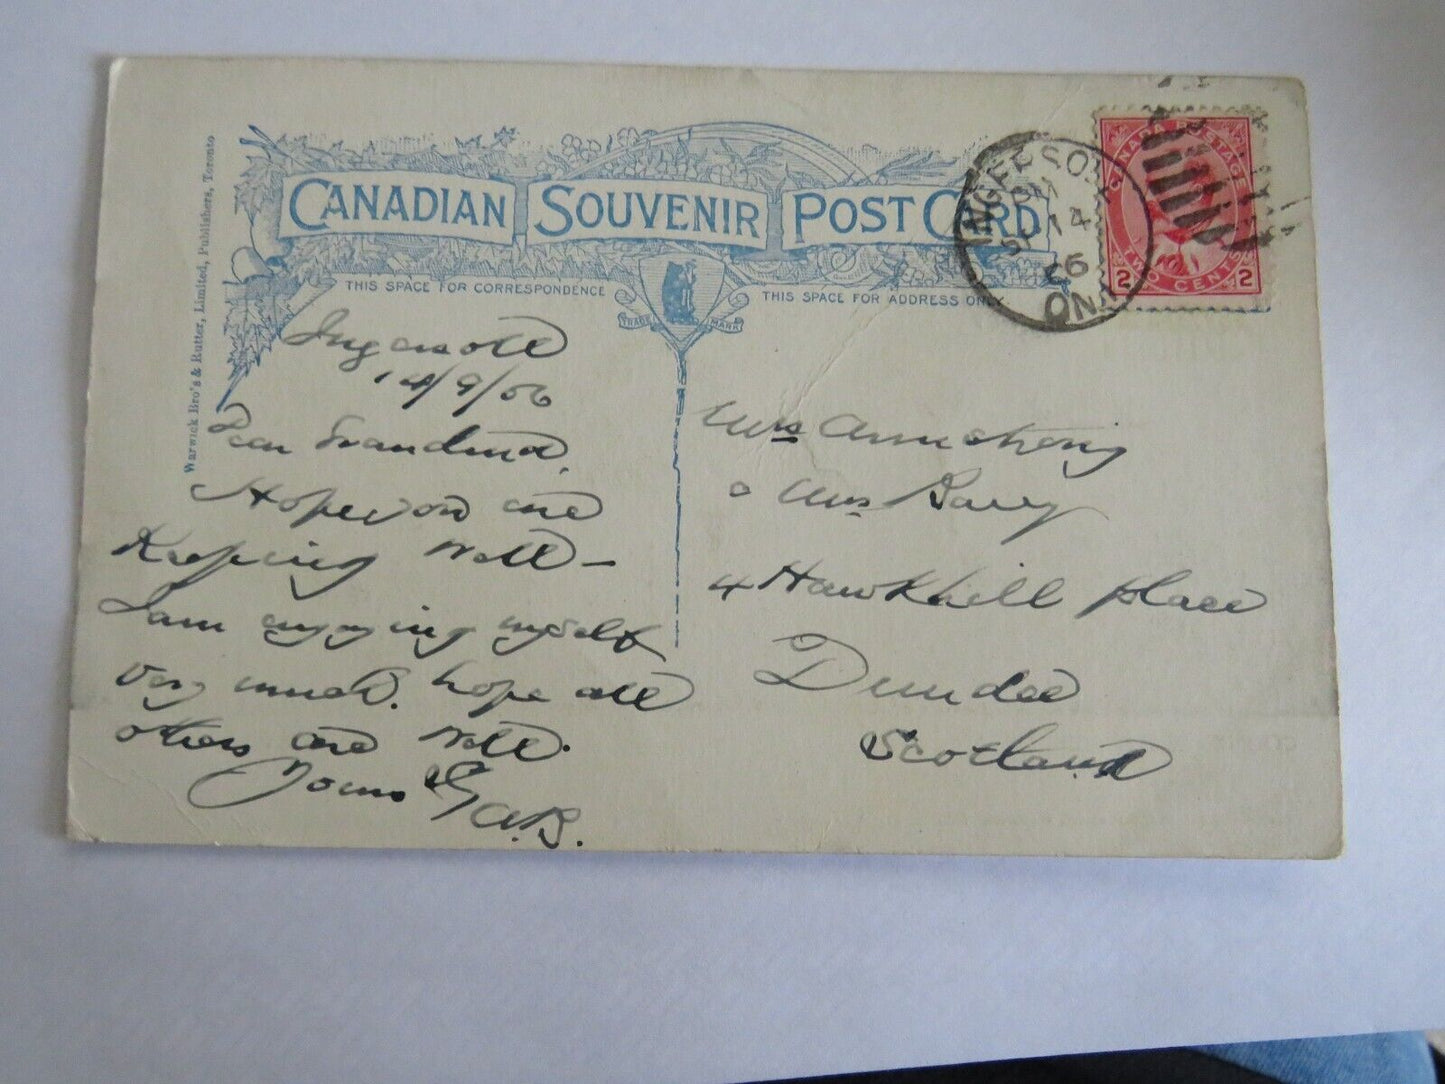 CANADIAN SOUVENIR POST CARD
THIS SPACE FOR CORRESPONDENCE
THIS SPACE FOR ADDRESS ONLY
TRADE MARK
Warwick Bro's & Rutter, Limited, Publishers, Toronto
INGERSOLL
PM
SP 14
06
ONT
CANADA POSTAGE
2 TWO CENTS 2
Ingersoll
14/9/06
Dear Grandma,
Hope you are
Keeping well –
I am enjoying myself
very much. hope all
others are well.
Yours
A.B.
Mrs Armstrong
Mrs
4 Hawkhill place
Dundee
Scotland